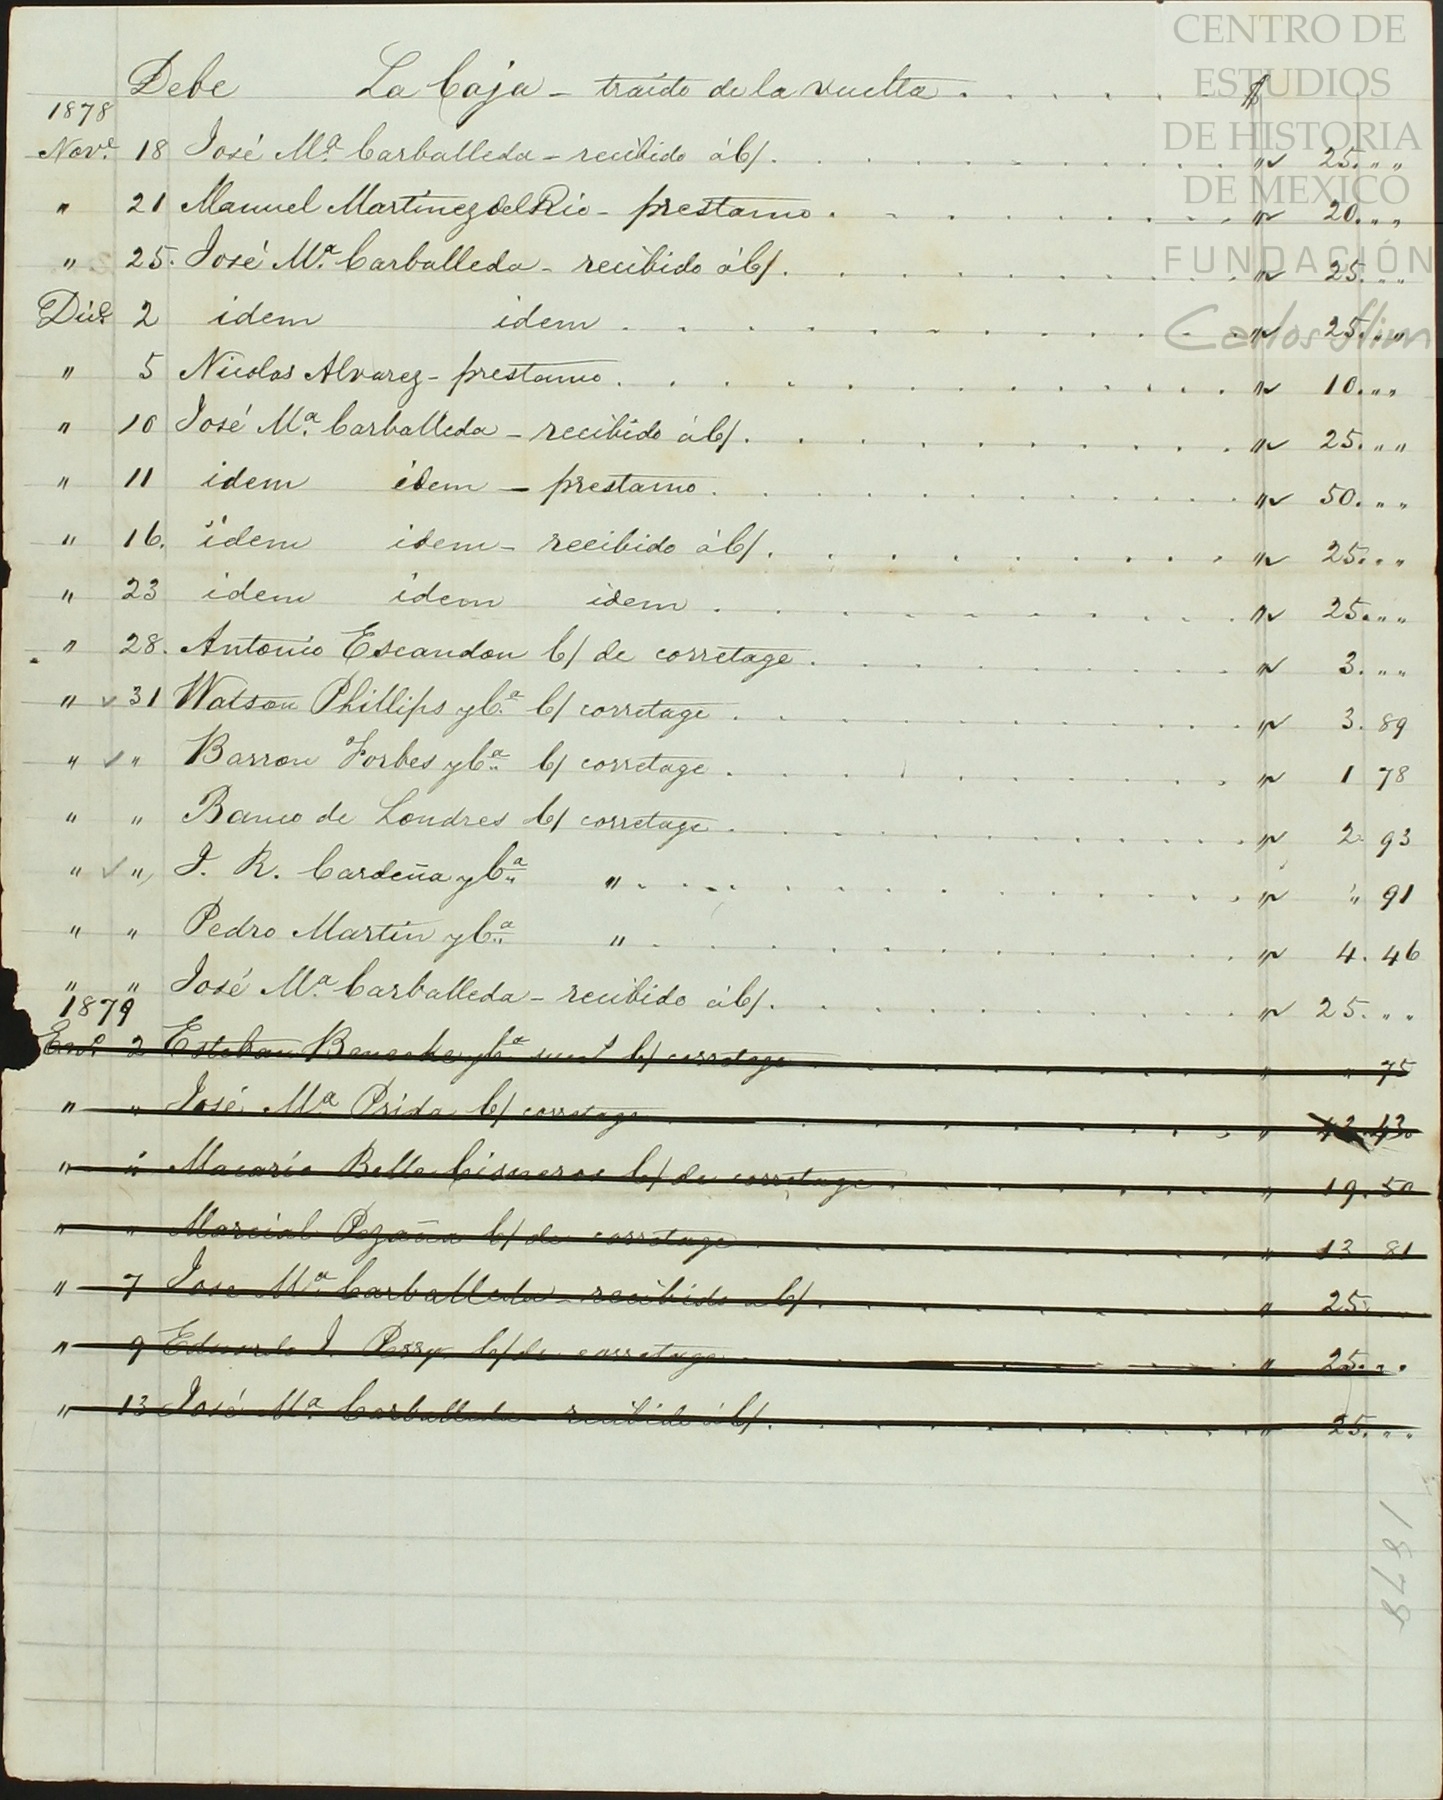 CENTRO DE
ESTUDIOS
DE HISTORIA
DE MEXICO
FUNDACIÓN
Carlos Slim
Debe La Caja - traido de la vuelta . . . . . $
1878
Nove. 18 José Ma. Carballeda - recibido á C/. . . . . " 25. " "
" 21 Manuel Martinez del Rio - prestamo . . . . . " 20. " "
" 25. José Ma. Carballeda - recibido á C/. . . . . " 25. " "
Dice. 2 idem idem . . . . . " 25. " "
" 5 Nicolas Alvarez - prestamo . . . . . " 10. " "
" 10 José Ma. Carballeda - recibido á C/. . . . . " 25. " "
" 11 idem idem - prestamo . . . . . " 50. " "
" 16. idem idem - recibido á C/. . . . . " 25. " "
" 23 idem idem idem . . . . . " 25. " "
" 28. Antonio Escandon C/ de corretage . . . . . " 3. " "
" 31 Watson Phillips y Ca. C/ corretage . . . . . " 3. 89
" " Barron Forbes y Ca. C/ corretage . . . . . " 1 78
" " Banco de Londres C/ corretage . . . . . " 2 93
" " J. R. Cardeña y Ca. " . . . . . " " 91
" " Pedro Martin y Ca. " . . . . . " 4. 46
" " José Ma. Carballeda - recibido á C/. . . . . " 25. " "
1879
Eno. 2 Esteban Benecke y Ca. C/ corretage . . . . . " " 75
" " José Ma Prida C/ corretage . . . . . "
" " Macario Bello Cisneros C/ de corretage . . . . . " 19. 50
" " Marcial C/ de corretage . . . . . " 13 81
" 7 Jose Ma. Carballeda - recibido a C/. . . . . " 25.
" 9 Eduardo J. Perry C/ de corretage . . . . . " 25. " "
" 13 José Ma. Carballeda - recibido á C/. . . . . " 25. " "
1879